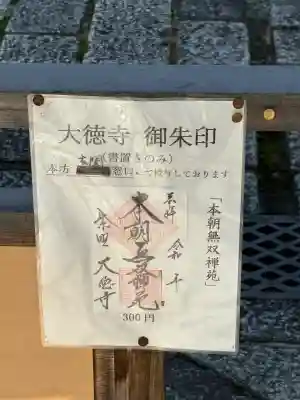 大徳寺 御朱印
（書置きのみ）
本坊 窓口にて授与しております
「本朝無双禅苑」
奉拝 令和 年
本朝無双禅苑
紫野 大徳寺
300円